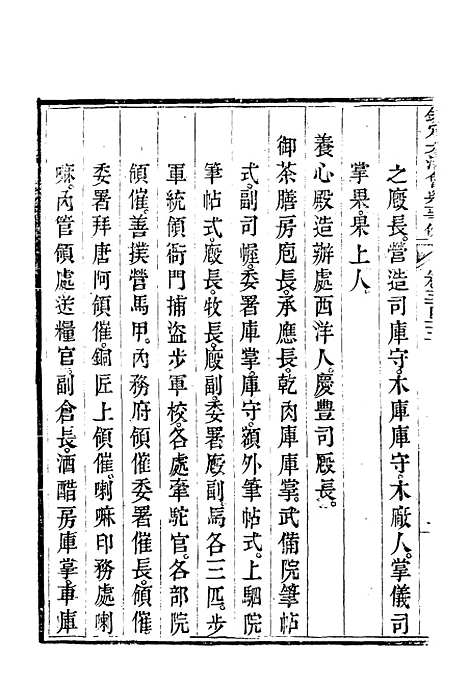 欽定大清會典事例
之廄長營造司庫守木庫庫守木廠人掌儀司
掌果果上人
養心殿造辦處西洋人慶豐司廄長
御茶膳房庖長承應長乾肉庫庫掌武備院筆帖
式副司幄委署庫掌庫守額外筆帖式上駟院
筆帖式廄長牧長廄副委署廄副馬各三匹步
軍統領衙門捕盜步軍校各處牽駝官各部院
領催善撲營馬甲內務府領催委署催長領催
委署拜唐阿領催銅匠上領催喇嘛印務處喇
嘛內管領處送糧官副倉長酒醋房庫掌車庫